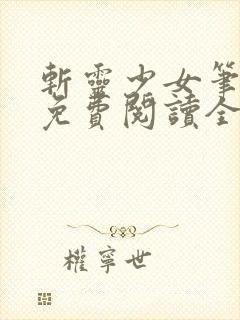 斬靈少女筆
免費閱讀全
權寧世